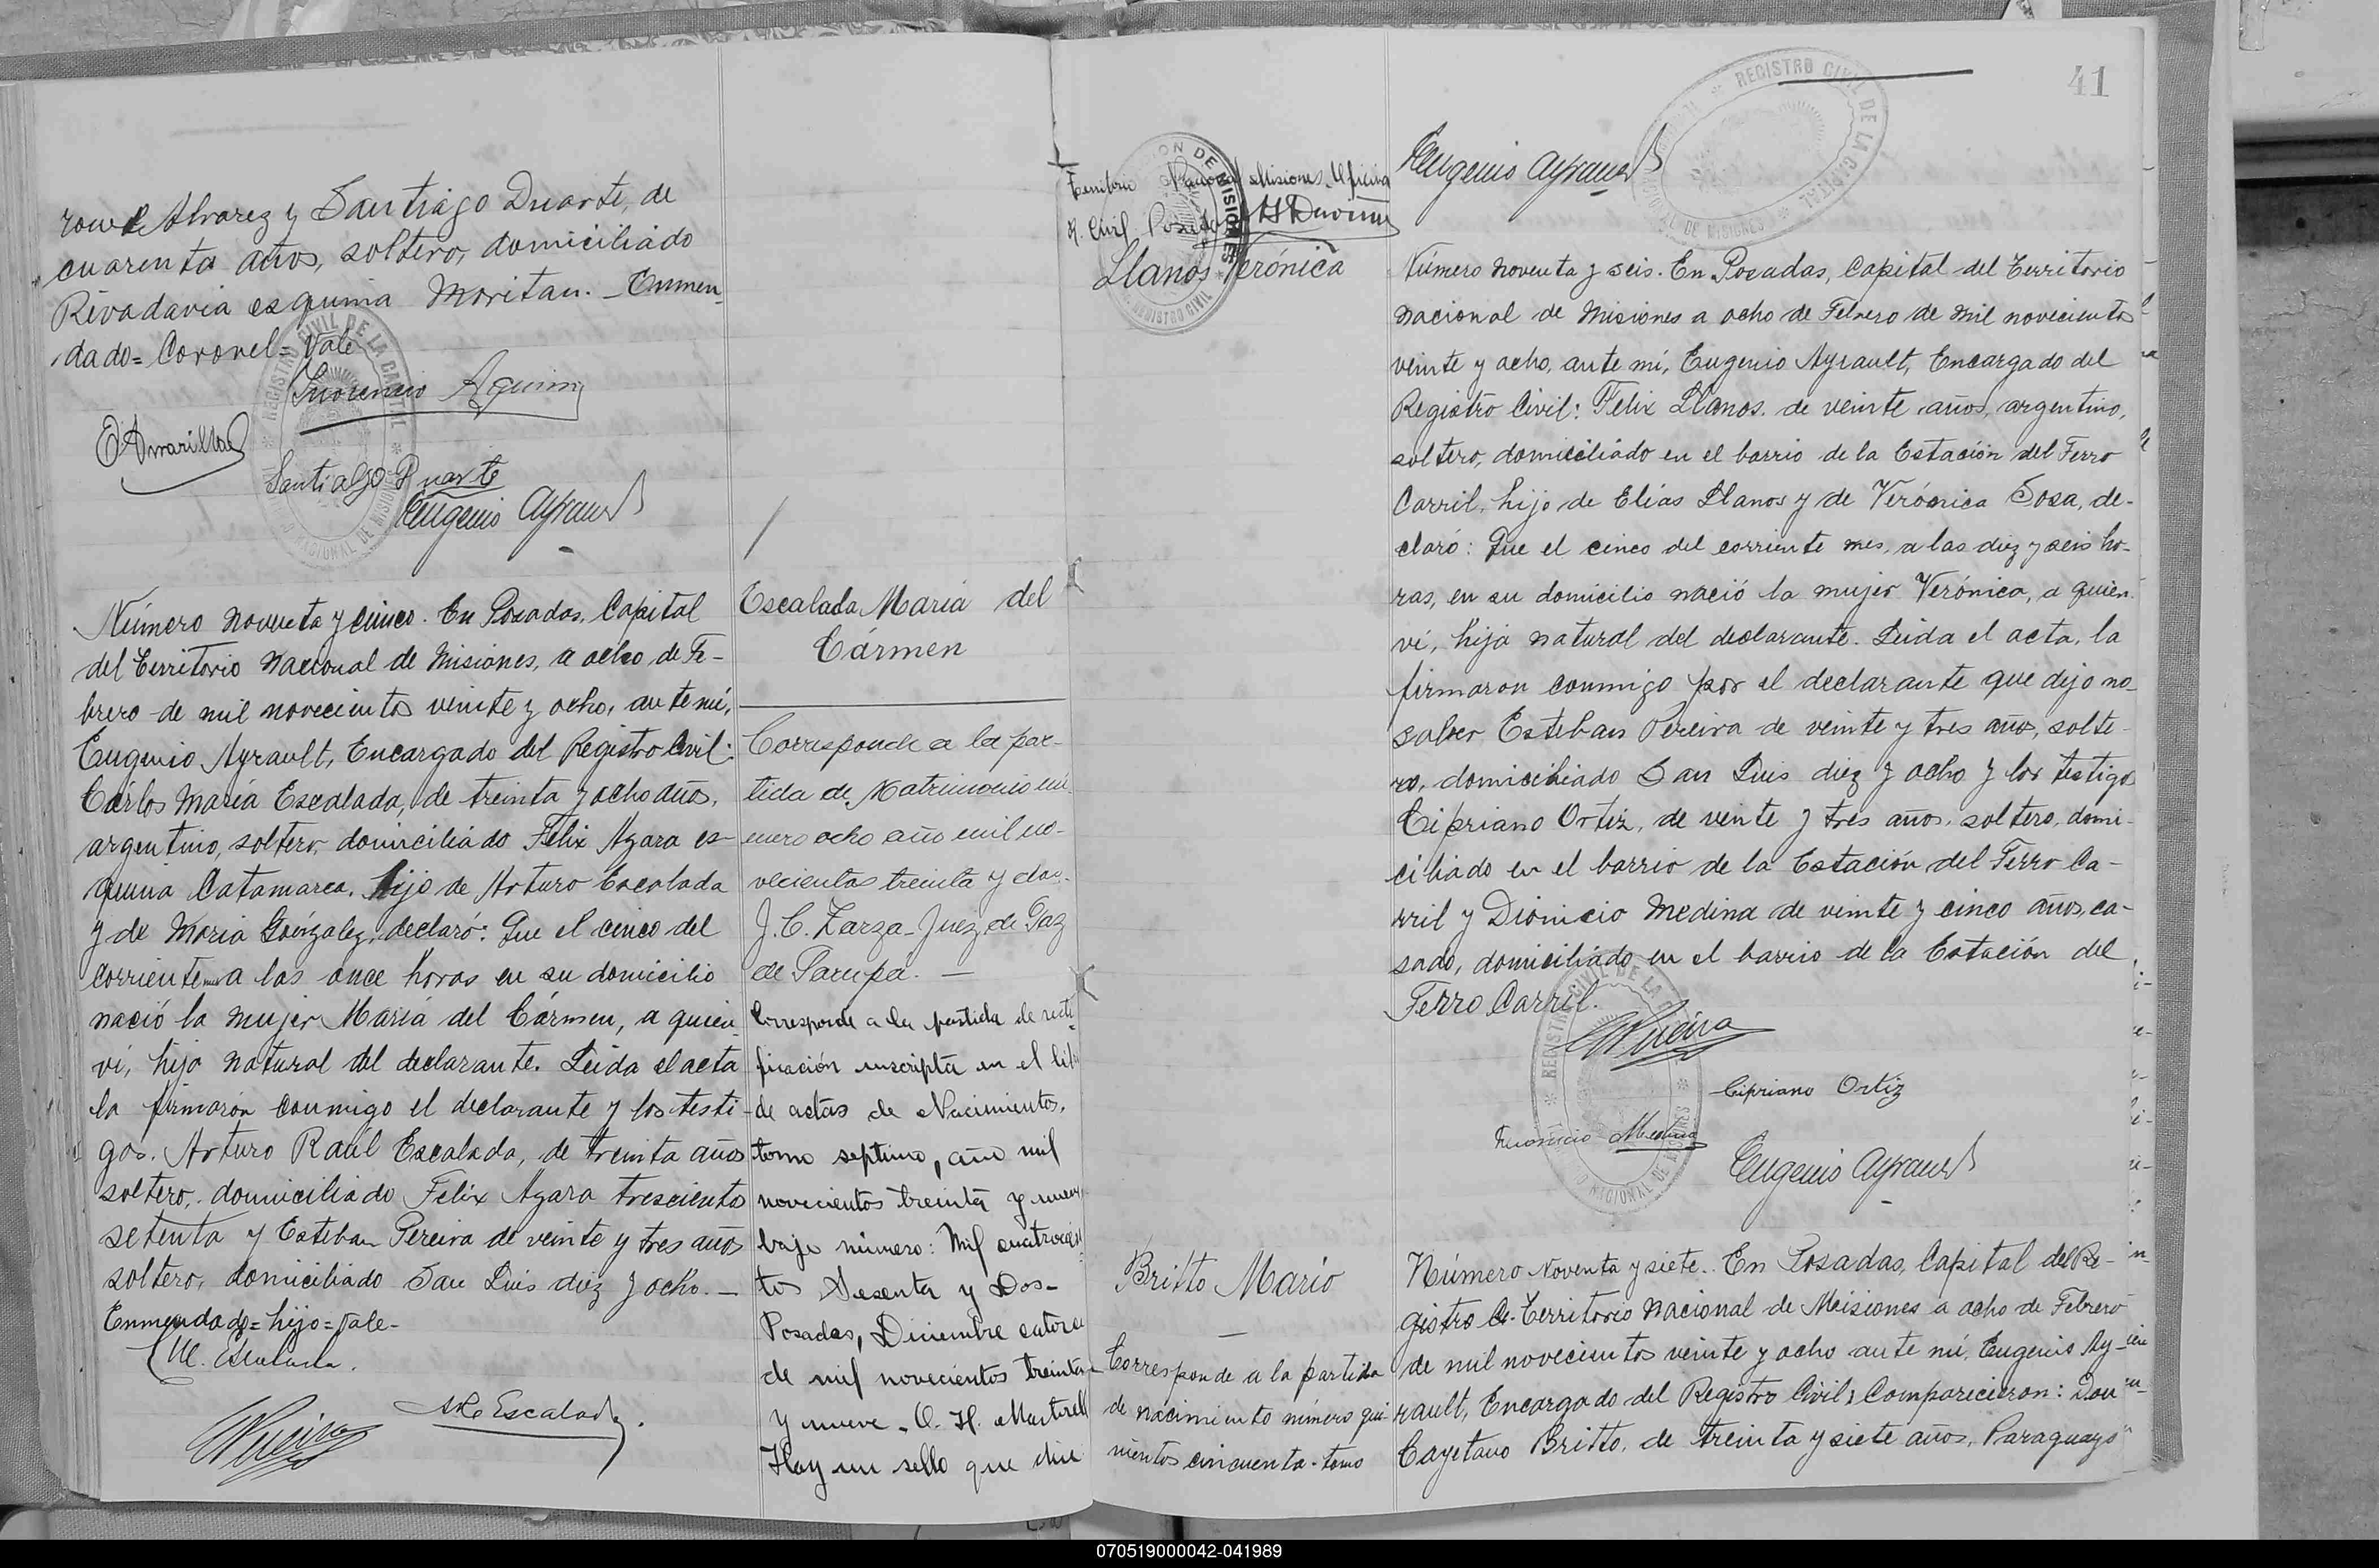 Alvarez y Santiago Duarte, de
cuarenta años, soltero, domiciliado
Rivadavia esquina Moritan. - Enmen-
dado= Coronel= Vale
Santiago Duarte
Eugenio Ayrault
Número noventa y cinco. En Posadas, Capital
del Territorio Nacional de Misiones, a ocho de Fe-
brero de mil novecientos veinte y ocho, ante mí,
Eugenio Ayrault, Encargado del Registro Civil:
Cárlos María Escalada, de treinta y ocho años,
argentino, soltero, domiciliado Félix Azara es-
quina Catamarca, hijo de Arturo Escalada
y de María González, declaró: Que el cinco del
corriente mes a las once horas en su domicilio
nació la mujer María del Cármen, a quien
ví, hija natural del declarante. Leida el acta
la firmaron conmigo el declarante y los testi-
gos. Arturo Raúl Escalada, de treinta años
soltero, domiciliado Felix Azara trescientos
setenta y Esteban Pereira de veinte y tres años
soltero, domiciliado San Luis diez y ocho. -
Enmendado= hijo= Vale-
Escalada
Escalada María del
Cármen
Corresponde a la par-
tida de Matrimonio nú-
mero ocho año mil no-
vecientos treinta y dos.
J. C. Zarza - Juez de Paz
de Parupá. -
Corresponde a la partida de recti-
ficación inscripta en el lib
de actas de Nacimientos,
tomo septimo, año mil
novecientos treinta y nueve
bajo número: Mil cuatrocien
tos Sesenta y Dos-
Posadas, Diciembre catorce
de mil novecientos treinta
y nueve - O. H. Martinell
Hay un sello que dice
41
Territorio Nacional Misiones Oficina
R. Civil Posadas
Llanos Verónica
REGISTRO CIVIL DE LA CAPITAL
Eugenio Ayrault
Número noventa y seis. En Posadas, Capital del Territorio
Nacional de Misiones a ocho de Febrero de mil novecientos
veinte y ocho, ante mí, Eugenio Ayrault, Encargado del
Registro Civil: Felix Llanos, de veinte años, argentino,
soltero, domiciliado en el barrio de la Estación del Ferro
Carril, hijo de Elías Llanos y de Verónica Sosa, de-
claró: Que el cinco del corriente mes, a las diez y seis ho-
ras, en su domicilio nació la mujer Verónica, a quien
ví, hija natural del declarante. Leida el acta, la
firmaron conmigo por el declarante que dijo no
saber Esteban Pereira de veinte y tres años, solte-
ro, domiciliado San Luis diez y ocho y los testigos
Cipriano Ortiz, de veinte y tres años, soltero, domi-
ciliado en el barrio de la Estación del Ferro Ca-
rril y Dionicio Medina de veinte y cinco años, ca-
sado, domiciliado en el barrio de la Estación del
Ferro Carril.
Cipriano Ortiz
Medina
Eugenio Ayrault
Britto Mario
Corresponde a la partida
de nacimiento número qui-
nientos cincuenta - tomo
Número Noventa y siete. En Posadas, Capital del Re-
gistro C. Territorio Nacional de Misiones a ocho de Febrero
de mil novecientos veinte y ocho ante mí, Eugenio Ay-
rault, Encargado del Registro Civil, Comparecieron: Don
Cayetano Britto, de treinta y siete años, Paraguayo
070519000042-041989